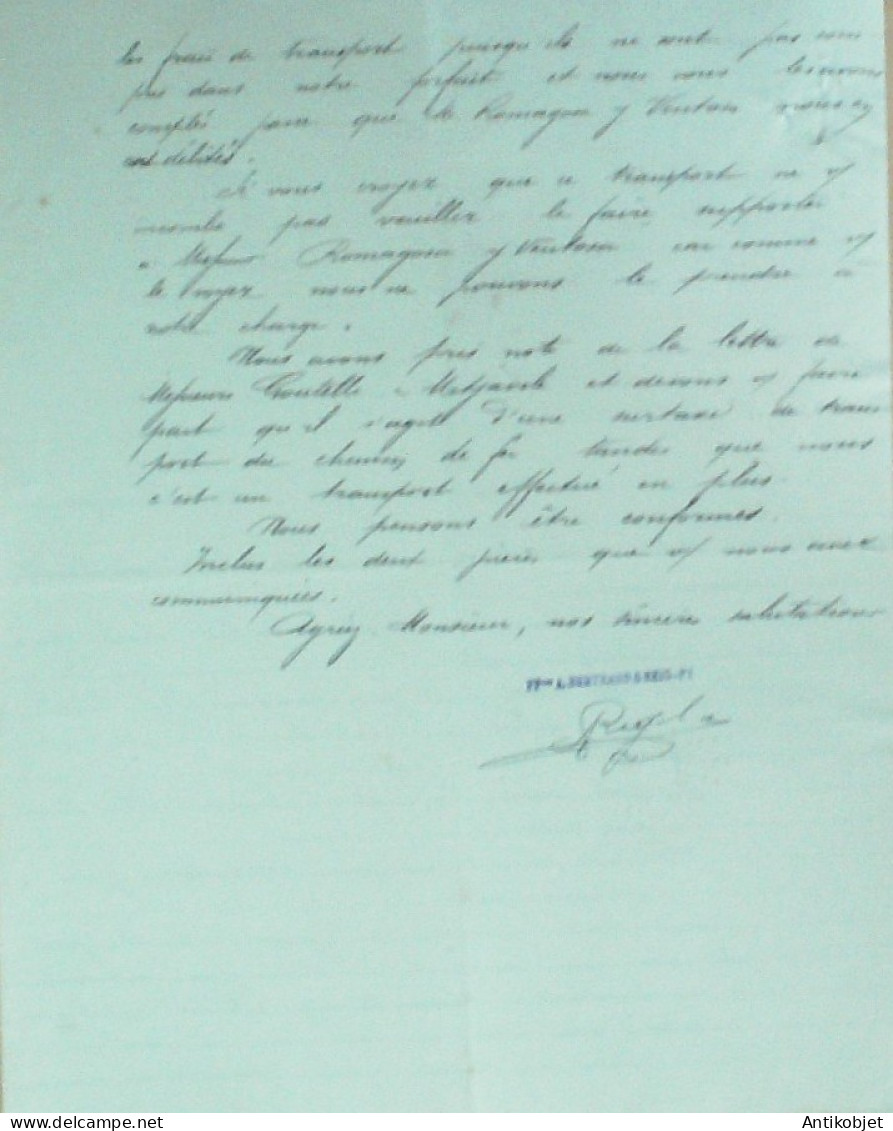 les frais de transport puisqu'ils ne sont pas com
pris dans notre forfait et nous vous les avons
comptés parce que de Romagosa y Ventosa nous en
ont débités.
Si vous croyez que ce transport ne v/
incombe pas veuillez le faire supporter
à Messieurs Romagosa y Ventosa car comme v/
le voyez nous ne pouvons le prendre à
notre charge.
Nous avons pris note de la lettre de
Messieurs et devons v/ faire
part qu'il s'agit d'une surtaxe de trans
port du chemin de fer tandis que nous
c'est un transport effectué en plus.
Nous pensons être conformes.
Inclus les deux pièces que v/ nous avez
communiquées.
Agréez Monsieur, nos sincères salutations
A. BERTRAND
Antikobjet